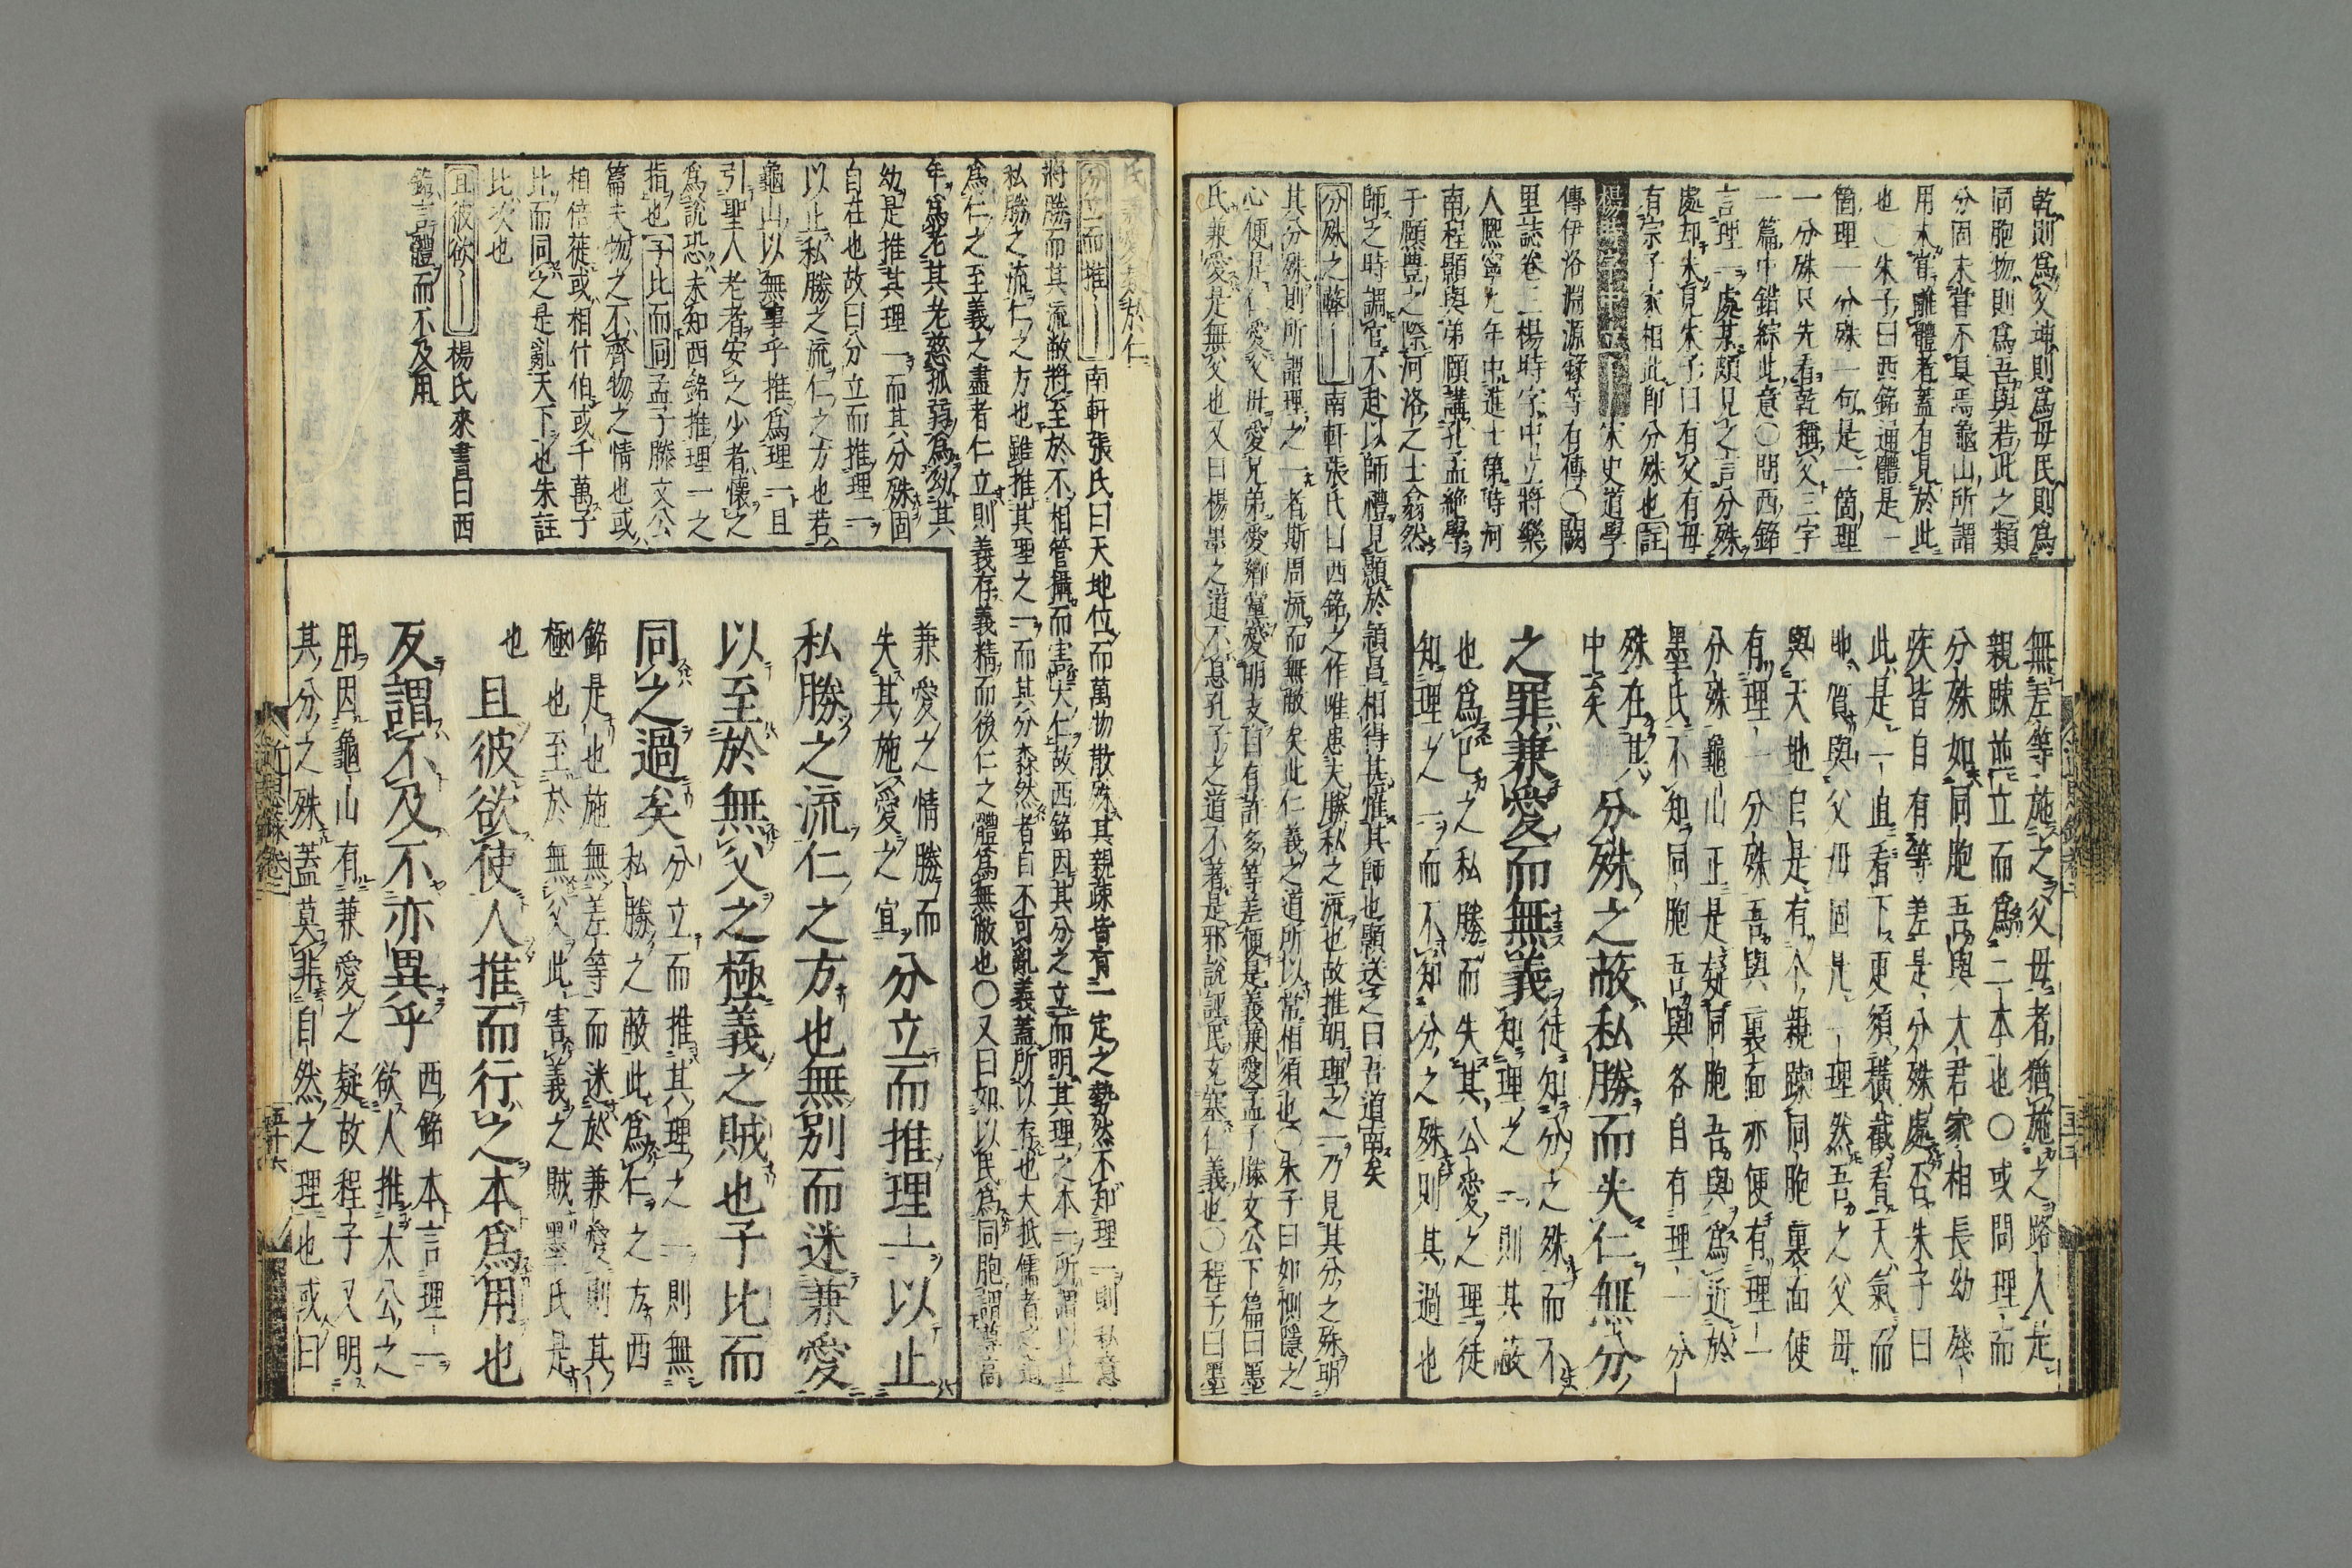 乾則爲父坤則爲母民則爲
同胞物則爲吾與若此之類
分固未嘗不具焉龜山所謂
用未嘗離體者蓋有見於此
也〇朱子曰西銘通體是一
箇理一分殊一句是一箇理
一分殊只先看乾稱父三字
一篇中錯綜此意〇問西銘
言理一處某頗見之言分殊
處却未見朱子曰有父有母
有宗子家相此即分殊也註
宋史道學
傳伊洛淵源錄等有傳〇關
里誌卷三楊時字中立將樂
人熙寧九年中進士第時河
南程顥與弟頤講孔孟絕學
于熙豐之際河洛之士翕然
師之時調官不赴以師禮見顥於潁昌相得甚懽其師也顥送之曰吾道南矣
分殊之蔽南軒張氏曰西銘之作唯患夫勝私之流也故推明理之一乃見其分之殊明
其分殊則所謂理之一者斯周流而無敝矣此仁義之道所以常相須也〇朱子曰如惻隱之
心便是仁愛父母愛兄弟愛鄉黨愛朋友自有許多等差便是義兼愛孟子滕文公下篇曰墨
氏兼愛是無父也又曰楊墨之道不息孔子之道不著是邪說誣民充塞仁義也〇程子曰墨
無差等施之父母者猶施之路人是
親踈並立而爲二本也〇或問理一而
分殊如同胞吾與大君家相長幼殘
疾皆自有等差是分殊處否朱子曰
此是一直看下更須橫截看天氣而
地質與父母固是一理然吾之父母
與天地自是有个親踈同胞裏面便
有理一分殊吾與裏面亦便有理一
分殊龜山正是疑同胞吾與爲近於
墨氏不知同胞吾與各自有理一分
殊在其中矣
分殊之蔽私勝而失仁無分
之罪兼愛而無義
徒知分之殊而不
知理之一則其蔽
也爲已之私勝而失其公愛之理徒
知理之一而不知分之殊則其過也
分立而推南軒張氏曰天地位而萬物散殊其親疎皆有一定之勢然不知理一則私意
將勝而其流敝將至於不相管攝而害夫仁故西銘因其分之立而明其理之本一所謂以止
私勝之流仁之方也雖推其理之一而其分森然者自不可亂義蓋所以存也大抵儒者之道
爲仁之至義之盡者仁立則義存義精而後仁之體爲無敝也〇又曰如以民爲同胞謂尊高
年爲老其老慈孤弱爲幼其
幼是推其理一而其分殊固
自在也故曰分立而推理一
以止私勝之流仁之方也若
龜山以無事乎推爲理一且
引聖人老者安之少者懷之
爲說恐未知西銘推理一之
指也子比而同孟子滕文公
篇夫物之不齊物之情也或
相倍蓰或相什伯或千萬子
比而同之是亂天下也朱註
比次也
且彼欲楊氏來書曰西
銘言體而不及用
兼愛之情勝而
失其施愛之宜
分立而推理一以止
私勝之流仁之方也無別而迷兼愛
以至於無父之極義之賊也子比而
同之過矣
分立而推其理之一則無
私勝之蔽此爲仁之方西
銘是也施無差等而迷於兼愛則其
極也至於無父此害義之賊墨氏是
也
且彼欲使人推而行之本爲用也
反謂不及不亦異乎
西銘本言理一
欲人推大公之
用因龜山有兼愛之疑故程子又明
其分之殊蓋莫非自然之理也或曰
近思錄卷二
五十六